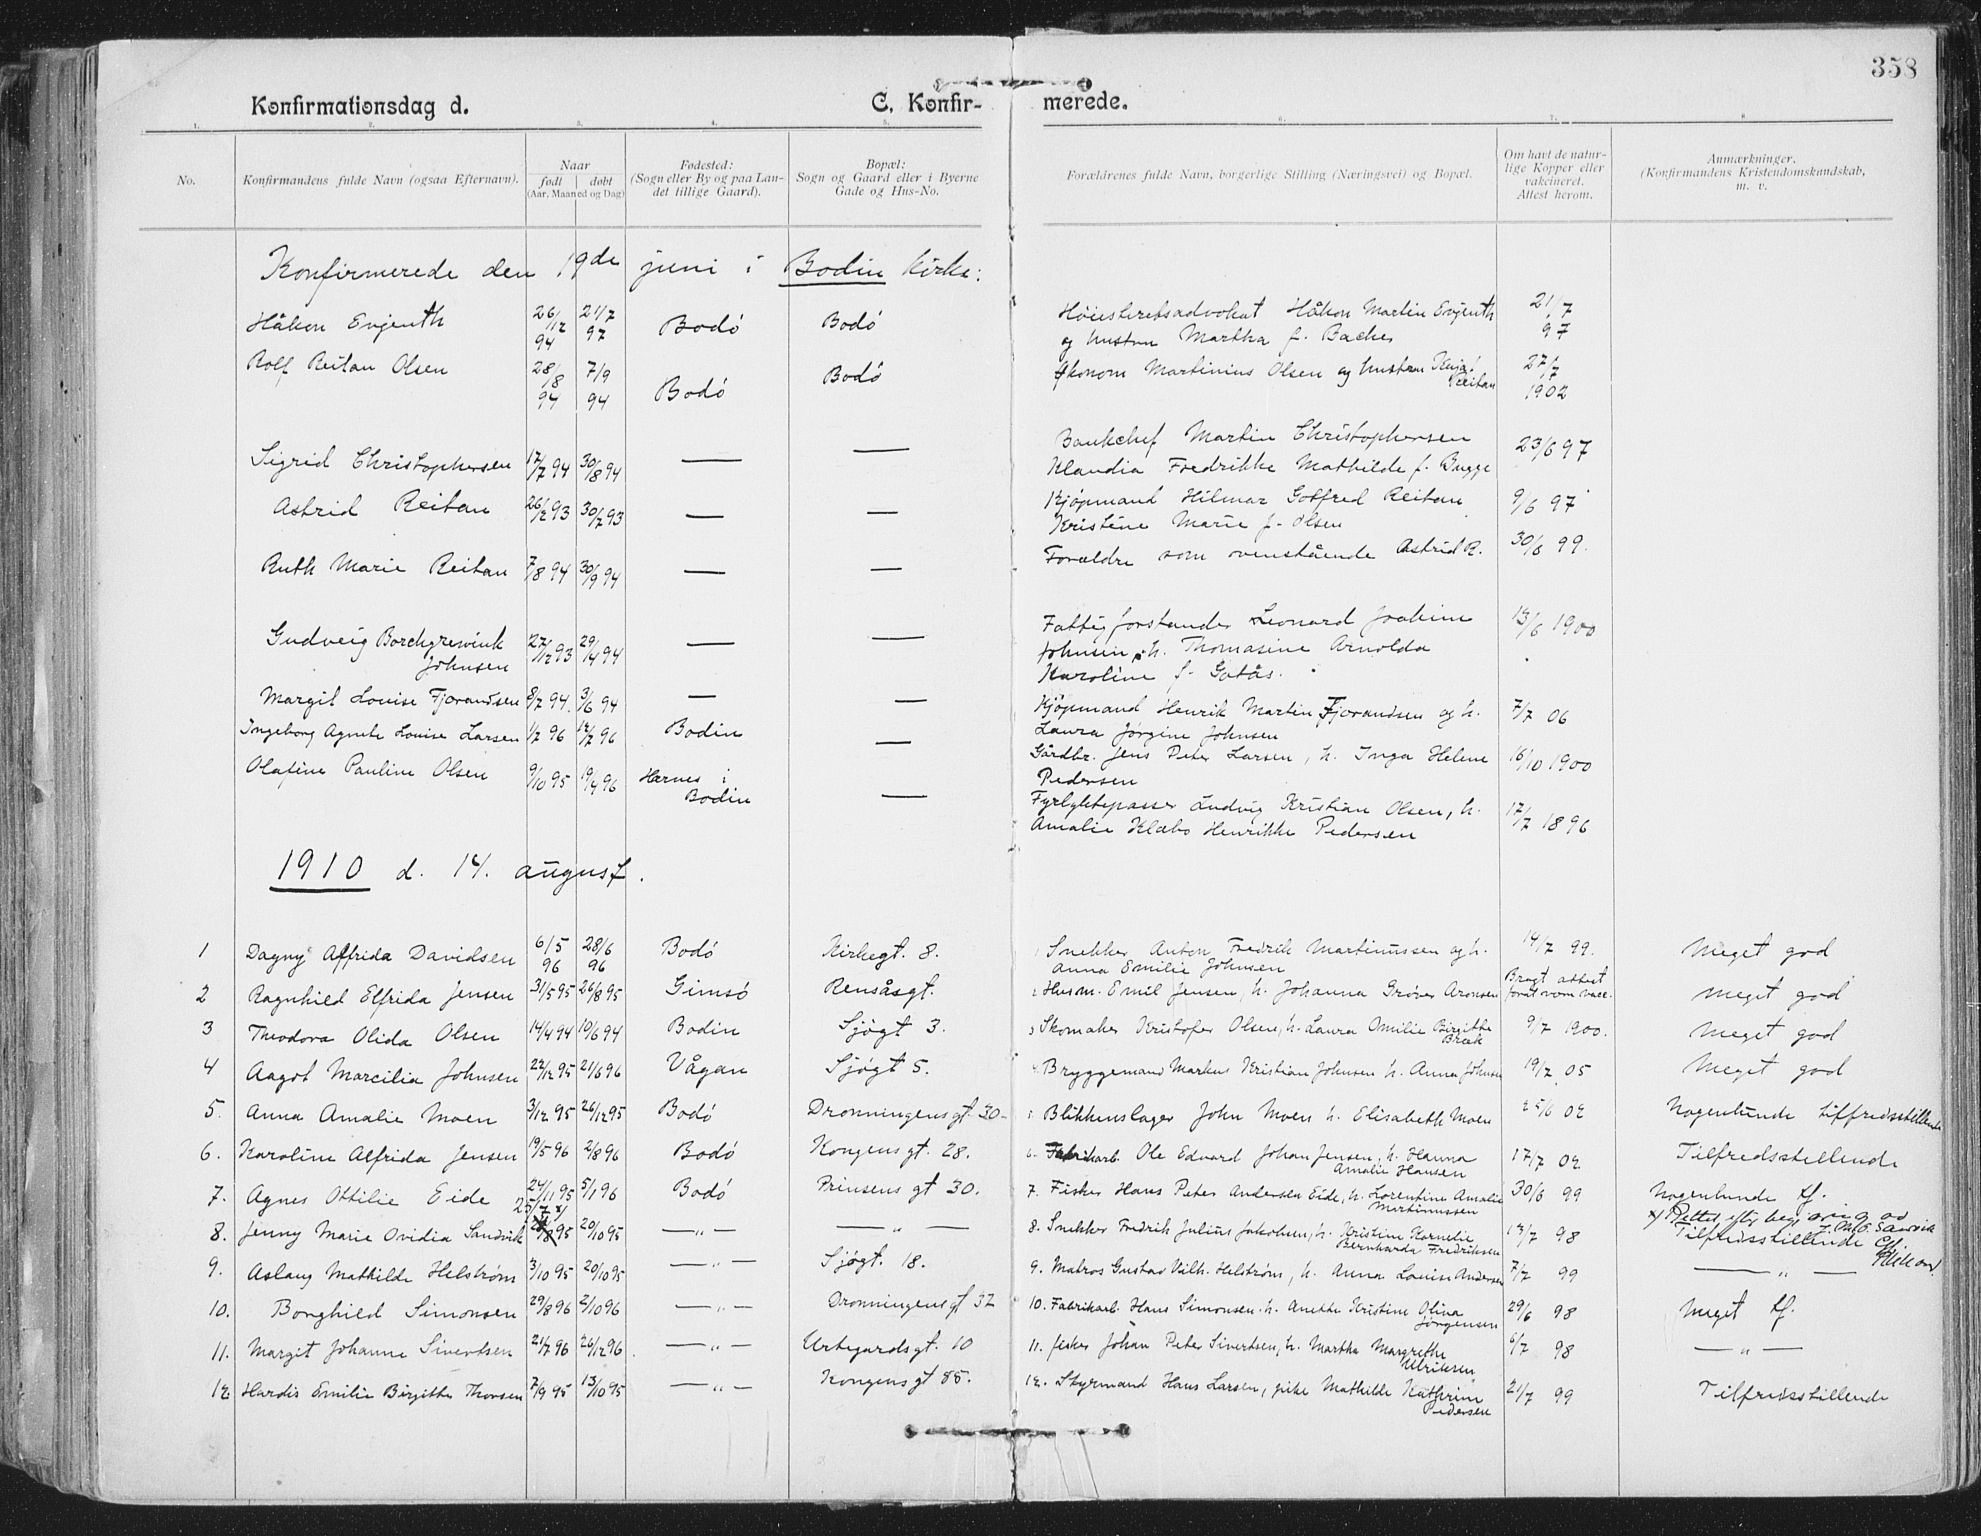 358
Konfirmationsdag d. C. Konfir- merede.
1. 2. 3. 4. 5. 6. 7. 8.
No. Konfirmandens fulde Navn (ogsaa Efternavn). Naar født døbt (Aar, Maaned og Dag) Fødested: (Sogn eller By og paa Landet tillige Gaard). Bopæl: Sogn og Gaard eller i Byerne Gade og Hus-No. Forældrenes fulde Navn, borgerlige Stilling (Næringsvei) og Bopæl. Om havt de naturlige Kopper eller vakcineret. Attest herom. Anmærkninger. (Konfirmandens Kristendomskundskab, m. v.
Konfirmerede den 19de juni i Bodin kirke:
Håkon Evjenth 26/12 94 21/7 97 Bodó Bodó Høiesteretsadvokat Håkon Martin Evjenth og hustru Martha f. Backer 21/7 97
Rolf Reitan Olsen 28/8 94 7/9 94 Bodó Bodó Økonom Martinius Olsen og hustru Reitan 27/7 1902
Sigrid Christophersen 17/7 94 30/8 94 — — Bankchef Martin Christophersen Klaudia Fredrikke Mathilde f. Bugge 23/6 97
Astrid Reitan 26/2 93 30/7 93 — — Kjøpmand Hilmar Gotfred Reitan Kristine Marie f. Olsen 9/6 97
Ruth Marie Reitan 7/8 94 30/9 94 — — Forældre som ovenstående Astrid R. 30/6 99.
Gudveig Borchgrevink Johnsen 27/12 93 29/4 94 — — Fattigforstander Leonard Joakim Johnsen, h. Thomasine Arnolda Karoline f. Gotås. 13/6 1900
Margit Louise Fjorandsen 8/7 94. 3/6 94 — — Kjøpmand Henrik Martin Fjorandsen og h. Laura Jørgine Johnsen 7/7 06
Ingeborg Agnete Louise Larsen 1/7 96 12/7 96 Bodin — Gårdbr. Jens Peter Larsen, h. Inga Helene Pedersen 16/10 1900
Olafine Pauline Olsen 9/10 95 19/4 96 Hernes i Bodin — Fyrlyktepasser Ludvig Kristian Olsen, h. Amalie Klæbo Henrikke Pedersen 17/7 1896
1910 d. 14. august.
1 Dagny Alfrida Davidsen 6/5 96 28/6 96 Bodó Kirkegt. 8. Snekker Anton Fredrik Martinussen og h. Anna Emilie Johnsen 14/7 99. Meget god
2 Ragnhild Elfrida Jensen 31/5 95 26/8 95 Gimsó Rensåsgt. 2 Husm. Emil Jensen, h. Johanna Grøver Aronsen Bragt attest meget god
3 Theodora Olida Olsen 14/4 94 10/6 94 Bodin Sjøgt 3. 3 Skomaker Kristofer Olsen, h. Laura Omilie Birgitte Bræk 9/7 1900. Meget god
4 Aagot Marcilia Johnsen 22/12 95 21/6 96 Vågan Sjøgt 5. 4. Bryggemand Markus Kristian Johnsen h. Anna Johnsen 19/7 05 Meget god
5. Anna Amalie Moen 3/12 95 26/12 95 Bodó Dronningens gt. 30 5. Blikkenslager John Moen h. Elisabeth Moen 25/6 02 Nogenlunde tilfredsstillende
6. Karoline Alfrida Jensen 19/5 96 2/8 96 Bodó Kongens gt. 28. 6. Fabrikarb. Ole Edvard Johan Jensen, h. Hanna Amalie Hansen 17/7 02 Tilfredsstillende
7. Agnes Ottilie Eide 24/11 95 5/1 96 Bodó Prinsens gt 30. 7. Fisker Hans Peter Andersen Eide, h. Lorentine Amalie Martinussen 30/6 99 Nogenlunde tf.
8. Jenny Marie Ovidia Sandvik 25/7 x) 95 20/10 95 —„— —„— 8. Snekker Fredrik Julius Jakobsen, h. Kristine Kornelie Bernharda Fredriksen 13/7 98 x) Rettet efter begjæring av Tilfredsstillende
9. Aslaug Mathilde Helstrøm 3/10 95 20/10 95 —„— Sjøgt. 18. 9. Matros Gustav Vilh. Helstrøm, h. Anna Louise Andersen 7/7 99 —„—
10. Borghild Simonsen 29/8 96 2/10 96 —„— Dronningens gt 32 10. Fabrikarb. Hans Simonsen h. Anette Kristine Olina Jörgensen 29/6 98 Meget tf.
11. Margit Johanne Sivertsen 21/7 96 26/12 96 —„— Urtegardsgt. 10 11. fisker Johan Peter Sivertsen, h. Martha Margrethe Ulriksen 6/7 98 —„—
12 Hardis Emilie Birgitte Thorsen 7/9 95 13/10 95 —„— Kongens gt 85. 12. Styrmand Hans Larsen, pike Mathilde Kathrine Pedersen 21/7 99 Tilfredsstillende